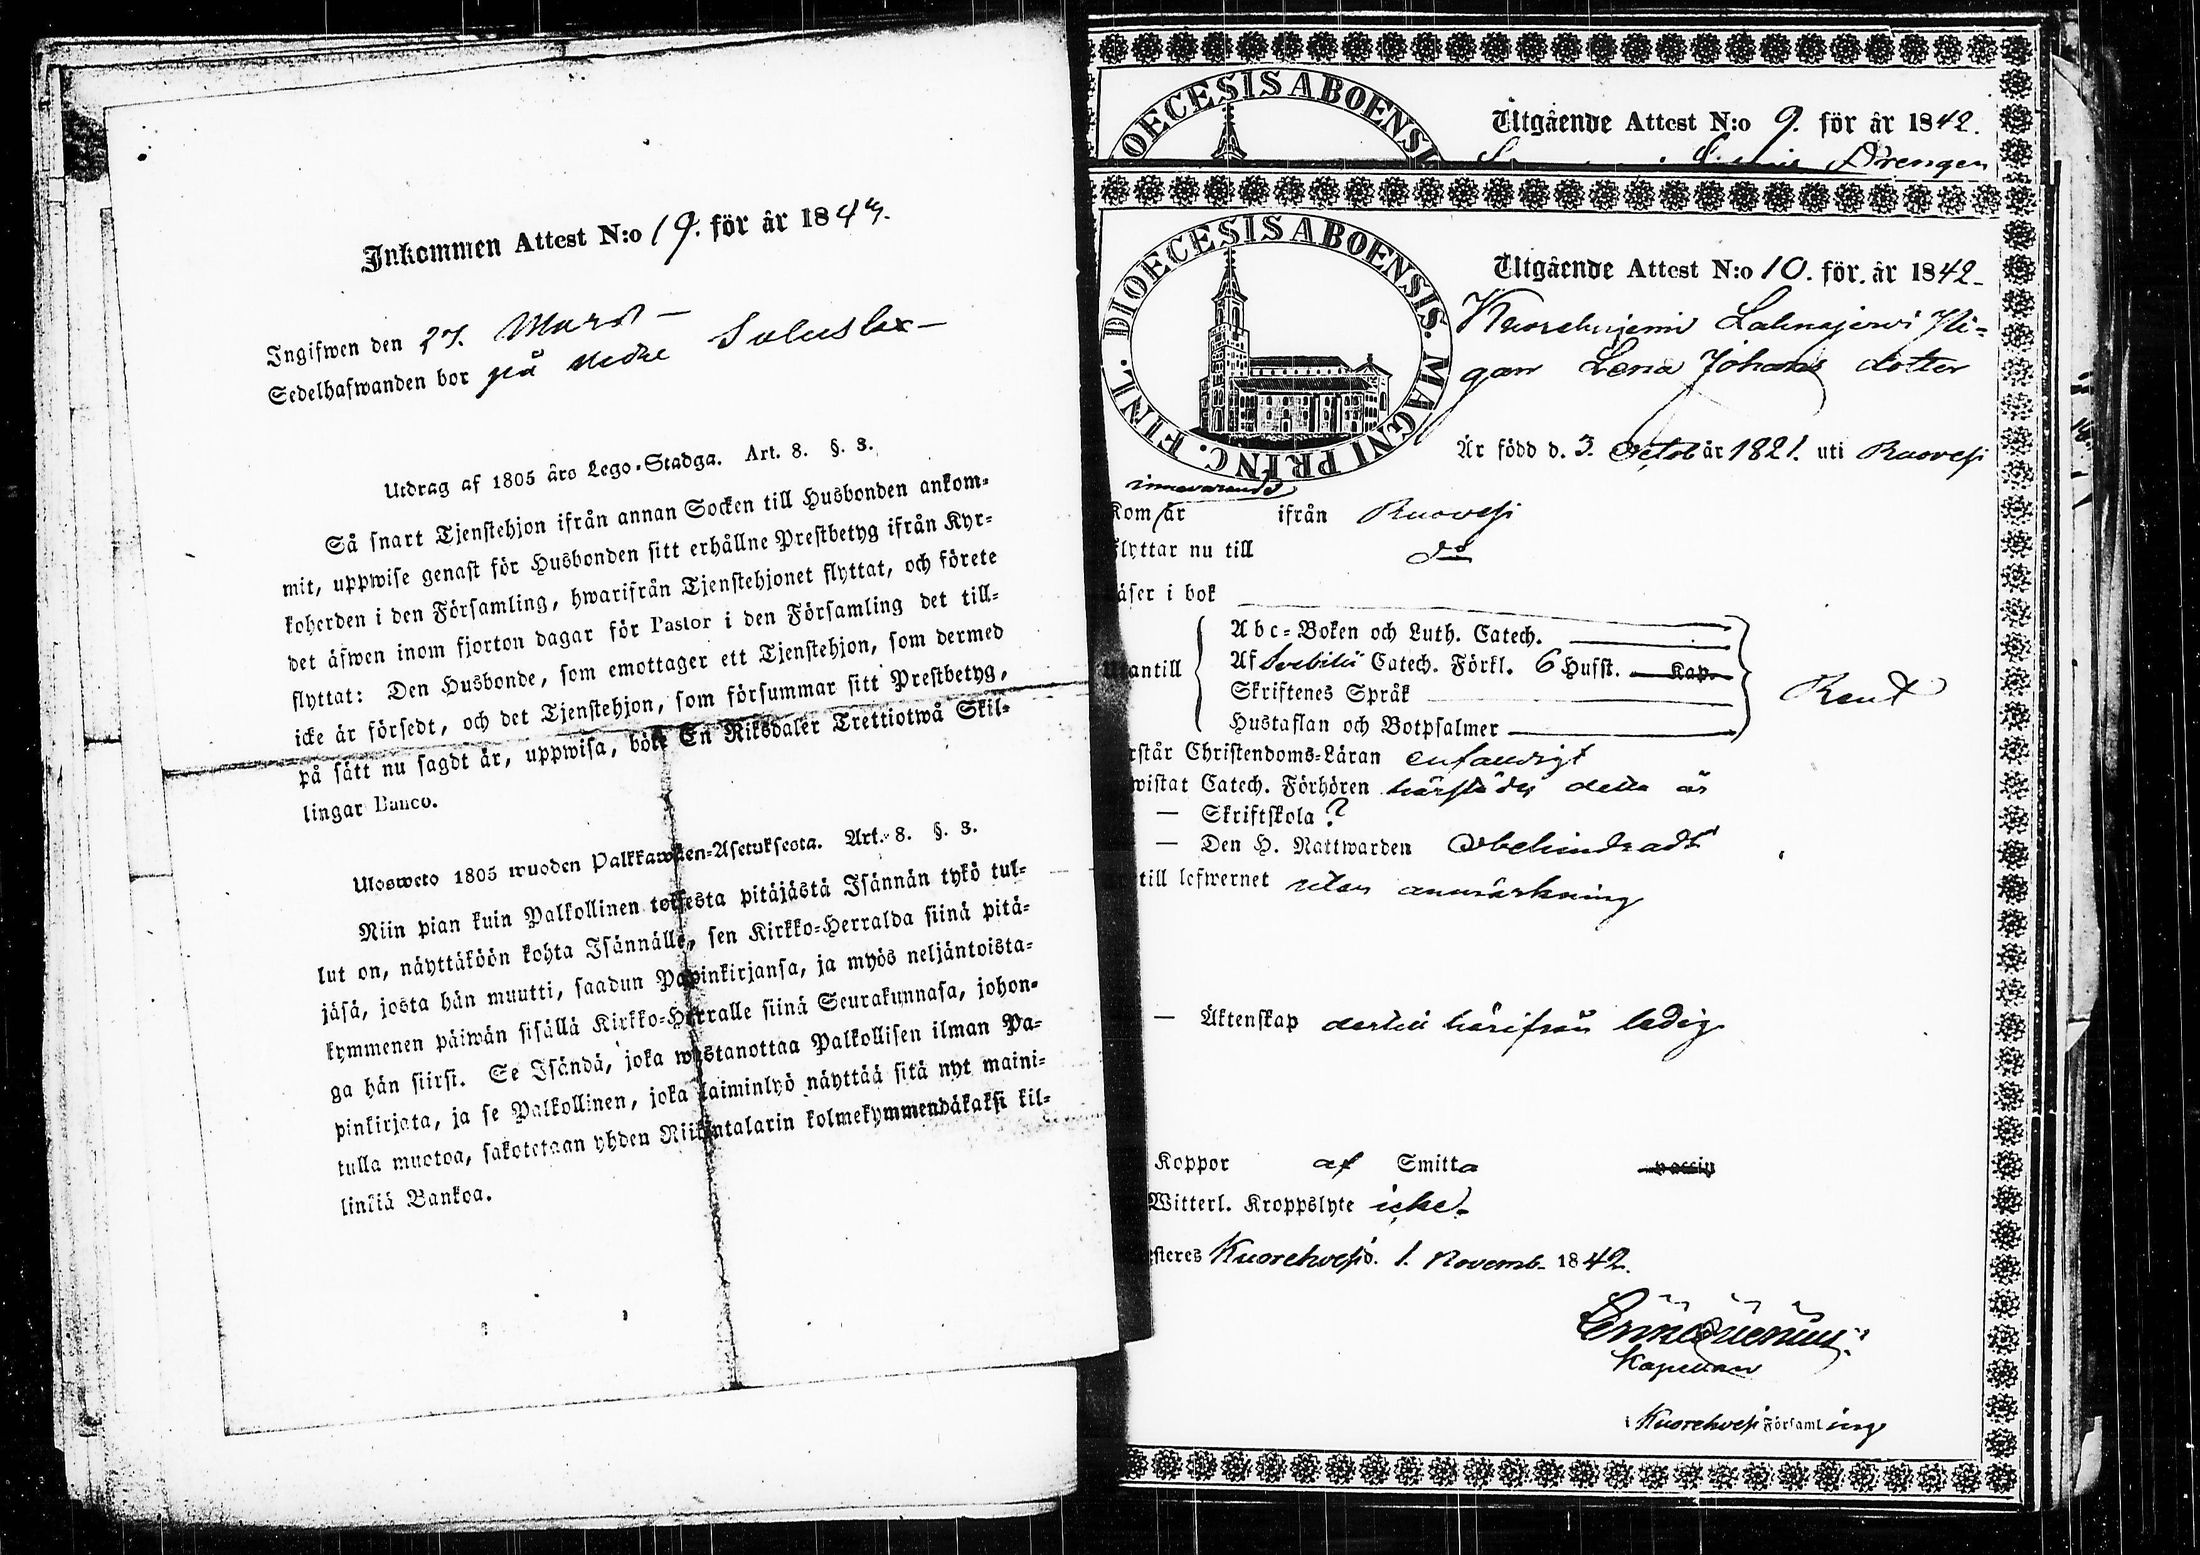 Inkommen Attest N:o 19. för år 184
Ingifwen den 27. Mars –
Sedelhafwanden bor på
Utdrag af 1805 års Lego-Stadga. Art. 8. §. 3.
Så snart Tjenstehjon ifrån annan Socken till Husbonden ankom-
mit, uppwise genast för Husbonden sitt erhållne Prestbetyg ifrån Kyr-
koherden i den Församling, hwarifrån Tjenstehjonet flyttat, och förete
det äfwen inom fjorton dagar för Pastor i den Församling det till-
flyttat: Den Husbonde, som emottager ett Tjenstehjon, som dermed
icke är försedt, och det Tjenstehjon, som försummar sitt Prestbetyg,
på sätt nu sagdt är, uppwisa, böte En Riksdaler Trettiotwå Skil-
lingar Banco.
Ulosweto 1805 wuoden Palkkawäen-Asetuksesta. Art. 8. §. 3.
Niin pian kuin Palkollinen toisesta pitäjästä Isännän tykö tul-
lut on, näyttäköön kohta Isännälle, sen Kirkko-Herralda siinä pitä-
jäsä, josta hän muutti, saadun Papinkirjansa, ja myös neljäntoista-
kymmenen päiwän sisällä Kirkko-Herralle siinä Seurakunnasa, johon-
ga hän siirsi. Se Isändä, joka wastanottaa Palkollisen ilman Pa-
pinkirjata, ja se Palkollinen, joka laiminlyö näyttää sitä nyt maini-
tulla muotoa, sakotetaan yhden Riikintalarin kolmekymmendäkaksi kil-
linkiä Bankoa.
OECESIS ABOENSI
Utgående Attest N:o 9. för år 1842.
Drengen
DIOECESIS ABOENSIS. MAGNI PRINC. FINL.
Utgående Attest N:o 10. för år 1842
Lahnajerwi Pi-
gan Lena Johans dotter
Är född d. 3. Octob år 1821. uti Ruovesi
innevarande
Kom år ifrån Ruovesi
flyttar nu till do
äser i bok
Utantill
Abc-Boken och Luth. Catech.
Af Svebilii Catech. Förkl. 6 Husst. Kap.
Skriftenes Språk
Hustaflan och Botpsalmer
Rent
rstår Christendoms-Läran enfaldigt
wistat Catech. Förhören härstädes detta år
— Skriftskola ?
— Den H. Nattwarden obehindradt
till lefwernet utan anmärkning
— Äktenskap dertill härifrån ledig
Koppor af Smitta
Witterl. Kroppslyte icke.
steres Kuorehvesi d. 1. Novemb. 1842.
Kapellan
i Kuorehvesi Församling